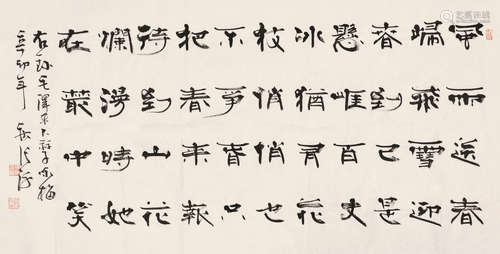 風雨送春
歸飛雪迎
春到已是
懸崖百丈
冰猶有花
枝俏俏也
不爭春只
把春來報
待到山花
爛漫時她
在叢中笑
右錄毛澤東卜算子咏梅
辛卯年